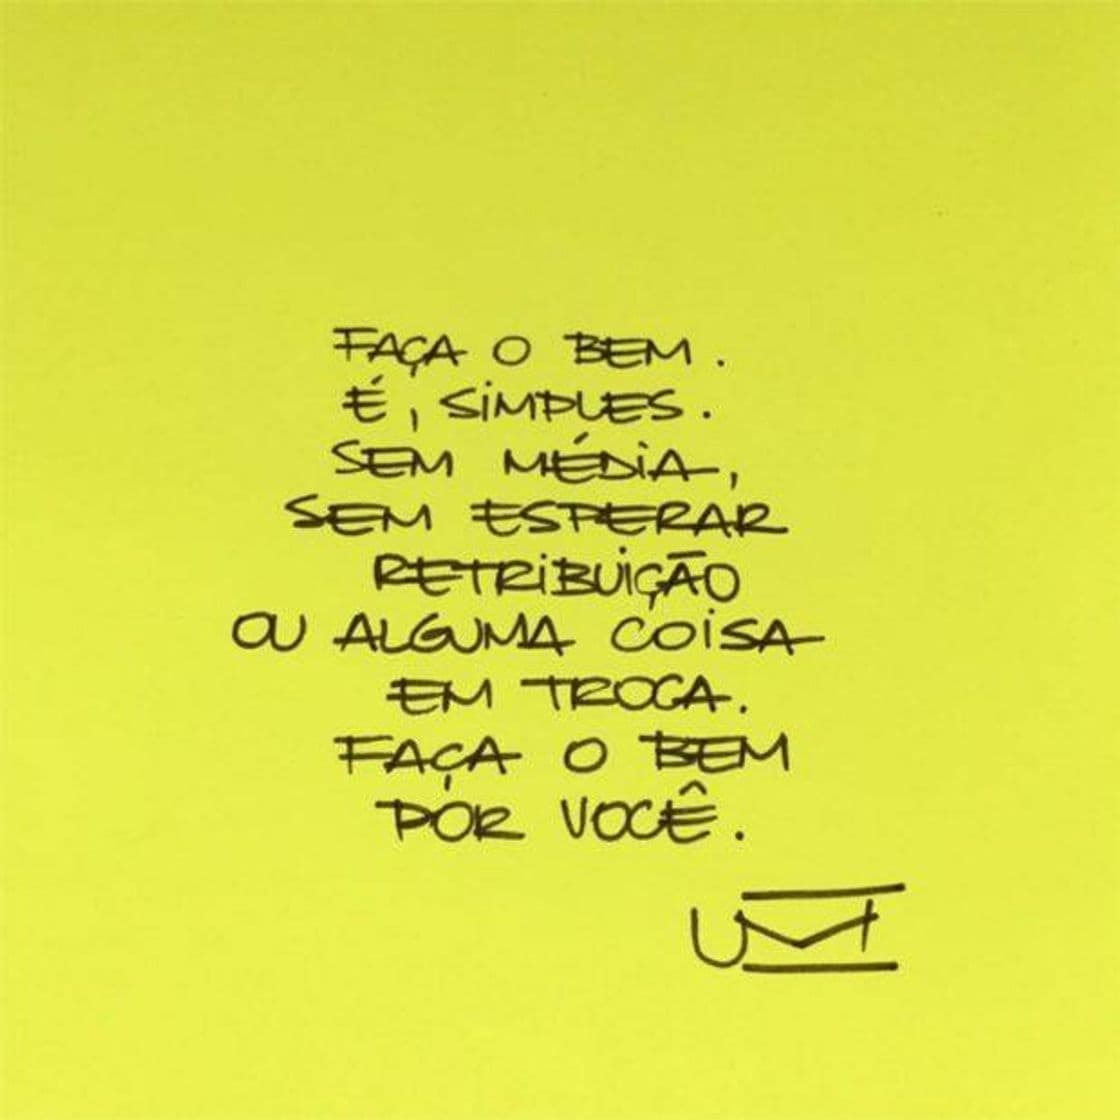 FAÇA O BEM.
É, SIMPLES.
SEM MÉDIA,
SEM ESPERAR
RETRIBUIÇÃO
OU ALGUMA COISA
EM TROCA.
FAÇA O BEM
POR VOCÊ.
UM